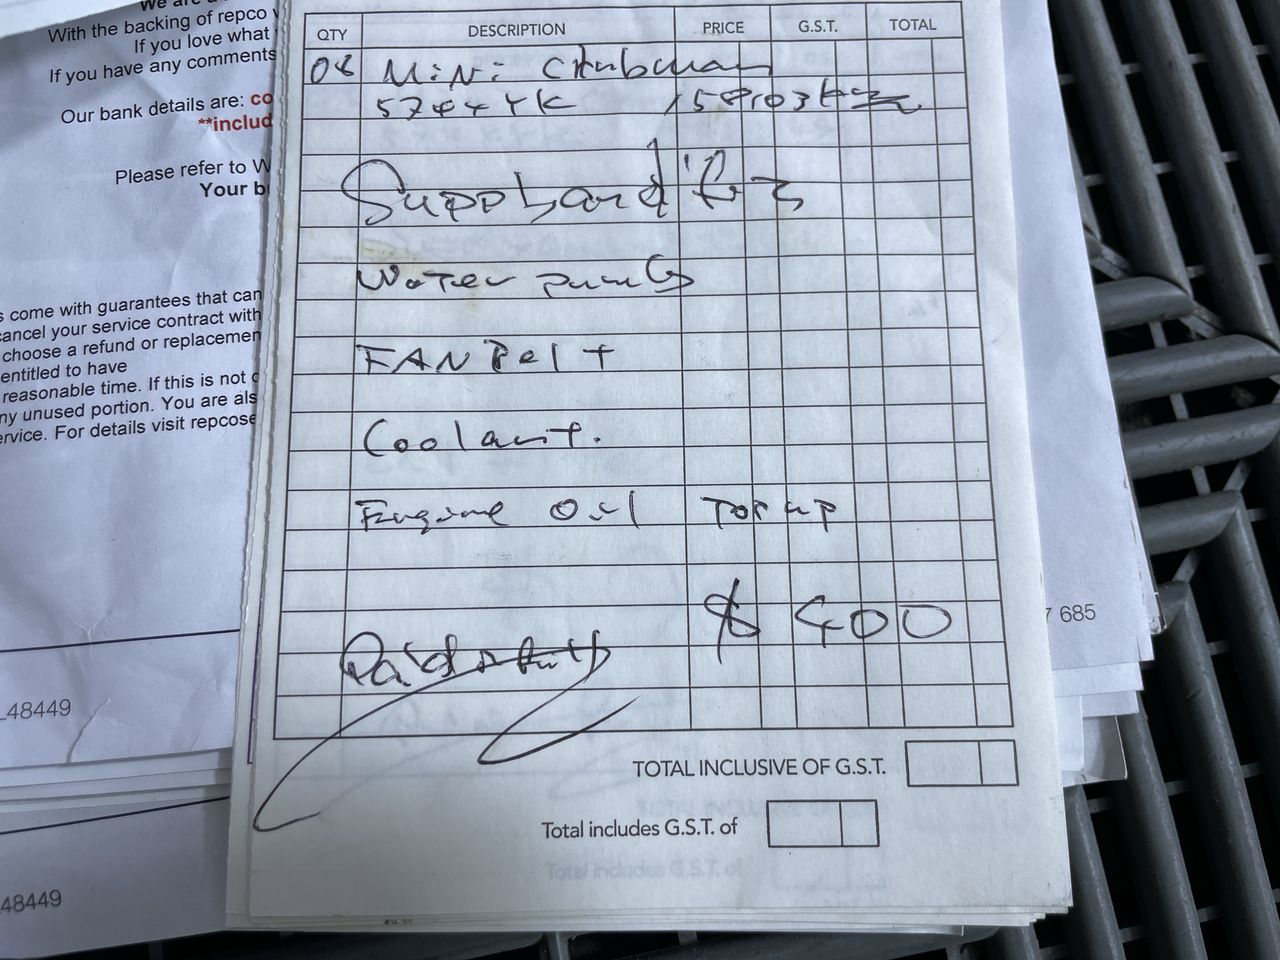 We are a
With the backing of repco
If you love what
If you have any comments
Our bank details are: co
**includ
Please refer to W
Your b
s come with guarantees that can
cancel your service contract with
choose a refund or replacemen
entitled to have
reasonable time. If this is not
ny unused portion. You are als
ervice. For details visit repcose
48449
48449
QTY DESCRIPTION PRICE G.S.T. TOTAL
08 MiNi Clubman
Water pump
FAN Belt
Coolant.
Engine Oil Top up
$ 400
Paid
TOTAL INCLUSIVE OF G.S.T.
Total includes G.S.T. of
7 685